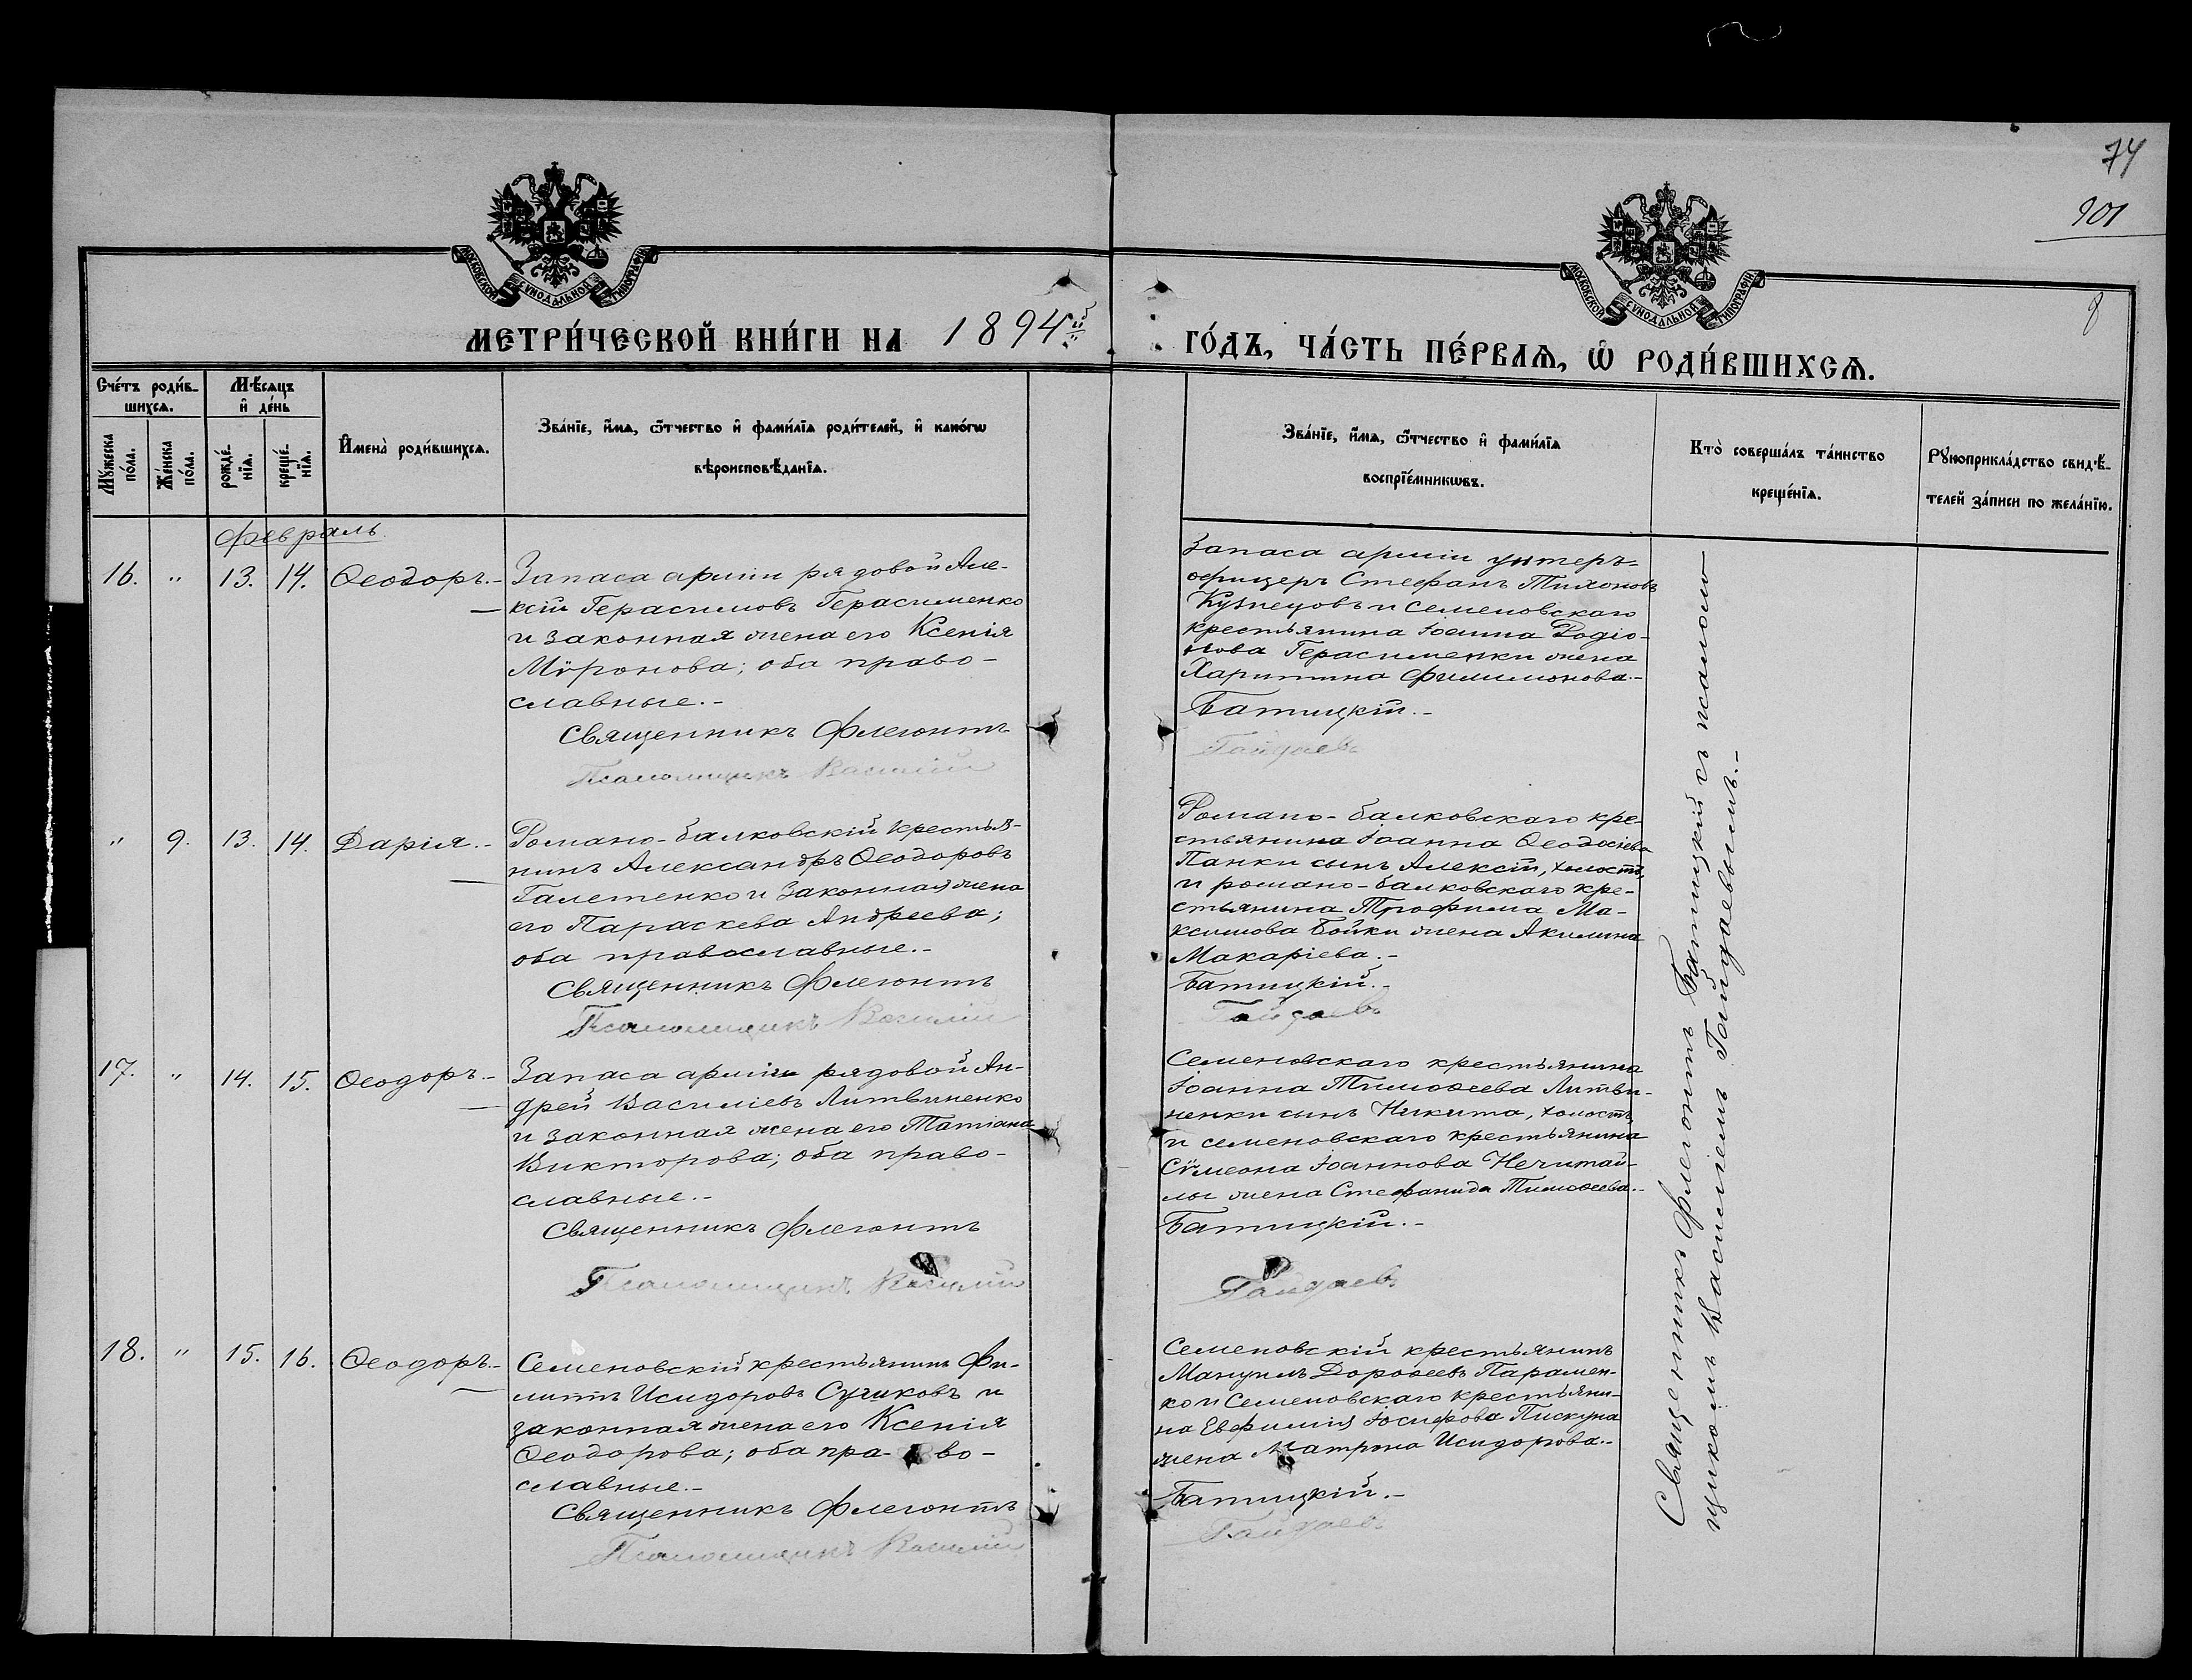 74
101
8
МОСКОВСКОЙ СУНОДАЛЬНОЙ ТИПОГРАФІИ
МОСКОВСКОЙ СУНОДАЛЬНОЙ ТИПОГРАФІИ
МЕТРИ́ЧЕСКОЙ КНИ́ГИ НА 1894й
ГО́ДЪ, ЧА́СТЬ ПЕ́РВАѦ, Ѡ РОДИ́ВШИХСѦ.
Сче́тъ роди́в-
шихсѧ.
Мѣ́сяцъ
и де́нь
Мꙋ́жеска
по́ла.
Же́нска
по́ла.
рожде́-
нїѧ.
креще́-
нїѧ.
Имена̀ роди́вшихсѧ.
Зва́нїе, и́мѧ, ѻ́тчество и фами́лїѧ роди́телей, и како́гѡ
вѣроисповѣ́данїѧ.
Зва́нїе, и́мѧ, ѻ́тчество и фами́лїѧ
воспрїе́мникѡвъ.
Кто̀ соверша́лъ та́инство
креще́нїѧ.
Рꙋкоприкла́дство свидѣ́-
телей за́писи по жела́нїю.
Февраль
16. " 13. 14. Ѳеодоръ.-
Запаса арміи рядовой Але-
ксій Герасимовъ Герасименко
и законная жена его Ксенія
Мѵронова; оба право-
славные.-
Священникъ Флегонтъ
Псаломщикъ Василій
Запаса арміи унтеръ-
офицеръ Стефанъ Тихоновъ
Кузнецовъ и семеновскаго
крестьянина Іоанна Родіо-
нова Герасименки жена
Харитина Филимонова.-
Батицкій.-
Гайдаевъ
" 9. 13. 14. Дарія.-
Романо-балковскій крестья-
нинъ Александръ Ѳеодоровъ
Галетенко и законная жена
его Параскева Андреева;
оба православные.-
Священникъ Флегонтъ
Псаломщикъ Василій
Романо-балковскаго кре-
стьянина Іоанна Ѳеодосіева
Панки сынъ Алексій, холостъ,
и романо-балковскаго кре-
стьянина Трофима Ма-
ксимова Бойки жена Акилина
Макаріева.-
Батицкій.-
Гайдаевъ
17. " 14. 15. Ѳеодоръ.-
Запаса арміи рядовой Ан-
дрей Василіевъ Литвиненко
и законная жена его Татіана
Викторова; оба право-
славные.-
Священникъ Флегонтъ
Псаломщикъ Василій
Семеновскаго крестьянина
Іоанна Тимоѳеева Литви-
ненки сынъ Никита, холостъ,
и семеновскаго крестьянина
Сѵмеона Іоаннова Нечитай-
лы жена Стефанида Тимоѳеева.-
Батицкій.-
Гайдаевъ
18. " 15. 16. Ѳеодоръ.-
Семеновскій крестьянинъ Фи-
липпъ Исидоровъ Сушковъ и
законная жена его Ксенія
Ѳеодорова; оба пра-во-
славные.-
Священникъ Флегонтъ
Псаломщикъ Василій
Семеновскій крестьянинъ
Мануилъ Дороѳеевъ Парамен-
ко и семеновскаго крестьяни-
на Евфимія Іосифова Пискуна
жена Матрона Исидорова.-
Батицкій.-
Гайдаевъ
Священникъ Флегонтъ Батицкій съ псалом-
щикомъ Василіемъ Гайдаевымъ.-